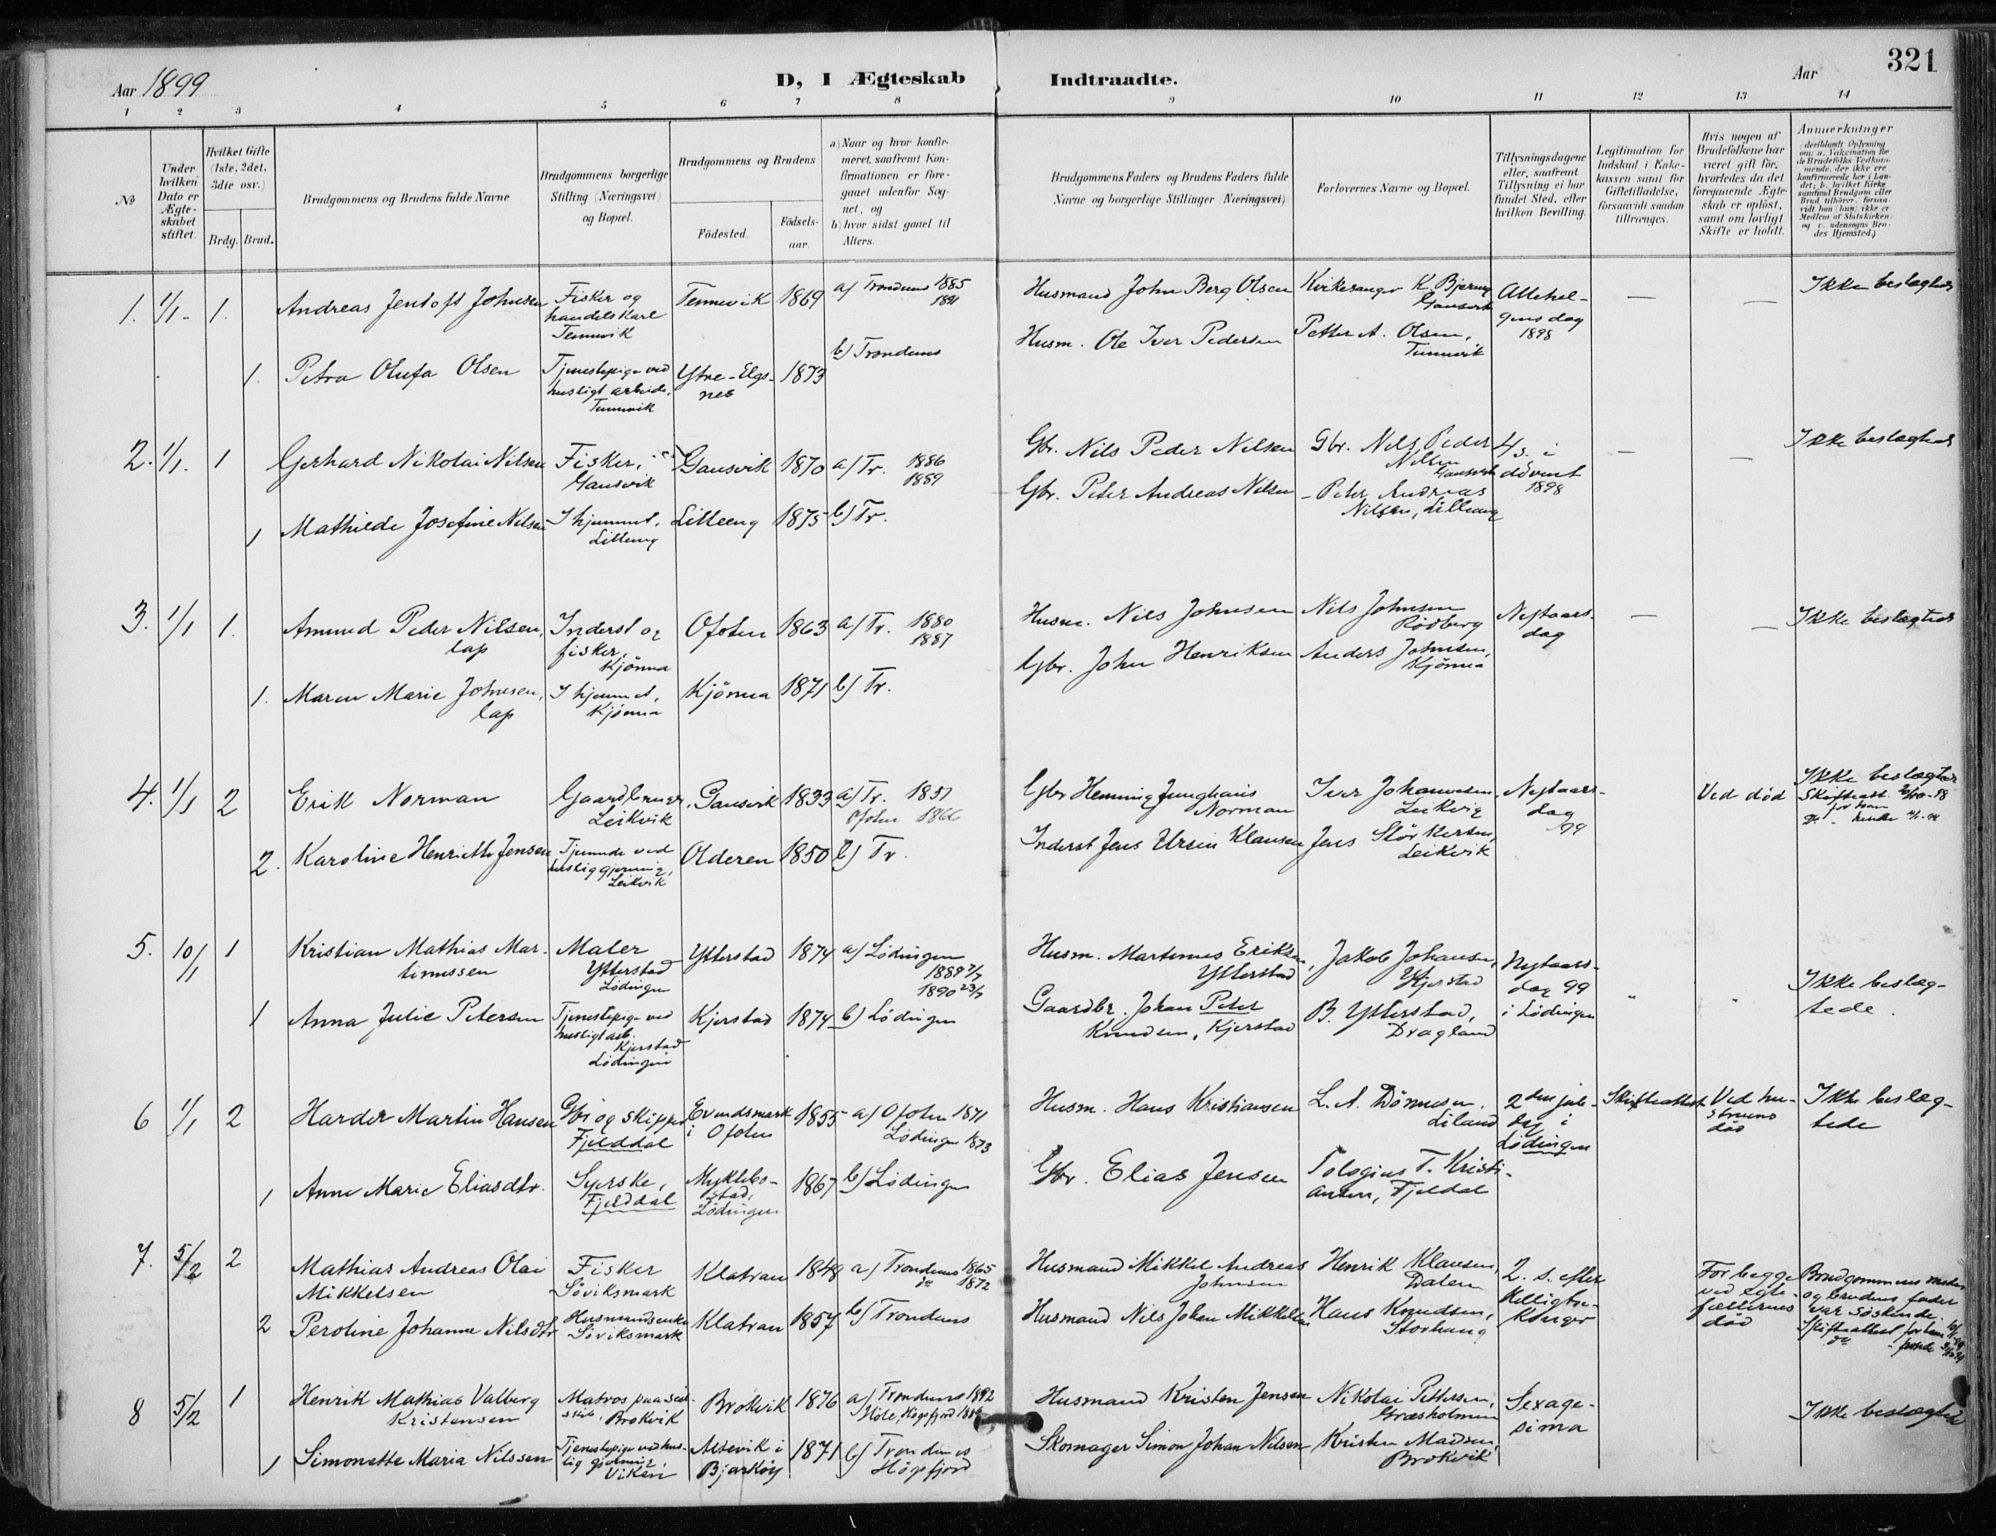 321
Aar 1899
D, I Ægteskab Indtraadte.
Aar
1 2 3 4 5 6 7 8 9 10 11 12 13 14
№
Under hvilken Dato er Ægteskabet stiftet.
Hvilket Gifte (1ste, 2det, 3die osv.)
Brdg. Brud.
Brudgommens og Brudens fulde Navne
Brudgommens borgerlige Stilling (Næringsvei) og Bopæl.
Brudgommens og Brudens
Fødested. Fødselsaar.
a) Naar og hvor konfirmeret, saafremt Konfirmationen er foregaaet udenfor Sognet, og
b) hvor sidst gaaet til Alters.
Brudgommens Faders og Brudens Faders fulde Navne og borgerlige Stillinger (Næringsvei)
Forlovernes Navne og Bopæl.
Tillysningsdagene eller, saafremt Tillysning ei har fundet Sted, efter hvilken Bevilling.
Legitimation for Indskud i Enkekassen samt for Giftetilladelse, forsaavidt saadan tiltrænges.
Hvis nogen af Brudefolkene har været gift før, hvorledes da det foregaaende Ægteskab er opløst, samt om lovligt Skifte er holdt.
Anmerkninger
1. 1/1- 1. Andreas Jentoft Johnsen Fisker og handelskarl Tennevik Tennevik 1869 a) Trondenes 1885 1891 Husmand John Berg Olsen Kirkesanger K. Bjering Gansvik Allehelgens dag 1898 — — Ikke beslægtede
1. Petra Olufa Olsen Tjenestepige ved husligt arbeide. Tennevik Ytre-Elgsnes 1873 b) Trondenes Husm. Ole Iver Pedersen Petter A. Olsen, Tennevik
2. 1/1. 1 Gerhard Nikolai Nilsen Fisker, Gansvik Gansvik 1870 a) Tr. 1886 1889 Gbr. Nils Peder Nilsen Gbr. Nils Peder Nilsen Gansvik 4 s. i advent 1898 — — Ikke beslægtede
1 Mathilde Josefine Nilsen I hjemmet, Lilleeng Lilleeng 1875 b) Tr. Gbr. Peter Andreas Nilsen - Peter Andreas Nilsen, Lilleeng
3. 1/1 1. Amund Peder Nilsen, lap Inderst og fisker, Kjönna Ofoten 1863 a) Tr. 1880 1887 Husm. Nils Johnsen Nils Johnsen Rödberg Nytaarsdag — — Ikke beslægtede
1. Maren Marie Johnsen, lap I hjemmet, Kjönna Kjönna 1871 b) Tr. Gbr. John Henriksen Anders Johnsen, Kjönna
4. 1/1 2 Erik Norman Gaardbruger, Leikvik Gansvik 1833 a) Tr. 1851 Ofoten 1866 Gbr Henning Junghans Norman Iver Johannesen Leikvig Nytaarsdag 99 Ved död Ikke beslægtede
2. Karoline Henriette Jensen Tjenende ved huslig gjerning, Leikvik Olderen 1850 b) Tr. Inderst Jens Ursin Klausen Jens Störkersen, Leikvik
5. 10/1 1 Kristian Mathias Martinussen Maler Ytterstad Lödingen Ytterstad 1874 a) Lödingen 1889 7/7 1890 23/7 Husm. Martinus Eriksen, Ytterstad Jakob Johansen, Kjerstad Nytaarsdag 99 i Lödingen " " Ikke beslægtede.
1 Anna Julie Petersen Tjenestepige ved husligt arb. Kjerstad Lödingen Kjerstad 1874 b) Lödingen Gaardbr. Johan Peter Knudsen, Kjerstad B. Ytterstad, Dragland
6 1/1 2 Harder Martin Hansen Gbr og skipper Fjelddal Evendsmark i Ofoten 1855 a) Ofoten 1871 Lödingen 1873 Husm. Hans Kristiansen L. A. Dönnesen, Liland 2den juledag i Lödingen Skifteattest Ved hustruens död Ikke beslægtede
1 Anne Marie Eliasdtr. Syerske, Fjelddal Myklebostad, Lödingen 1867 b) Lödingen Gbr. Elias Jensen Tologius T. Kristiansen, Fjeldal
7. 5/2 2 Mathias Andreas Olai Mikkelsen Fisker Söviksmark Klatran 1848 a) Trondenes 1865 do 1872 Husmand Mikkel Andreas Johnsen Henrik Klausen, Dalen 2. s. efter Helligtrekonger For begge ved ægtefællernes död Brudgommens moder og brudens fader var söskende.
2 Peroline Johanne Nilsdtr. Husmandsenke Söviksmark Klatran 1857 b) Trondenes Husmand Nils Johan Mikkelsen Hans Knudsen, Storhaug
8 5/2 1 Henrik Mathias Valberg Kristensen Matros paa seilskib, Brokvik Brokvik 1876 a) Trondenes 1892 Husmand Kristen Jensen Nikolai Pettersen, Græsholmen Sexagesima Ikke beslægtede
1 Simonette Maria Nilssen Tjenestepige ved huslig gjerning, Viken Altevik i Bjarköy 1871 b) Trondenes Högsfjord Skomager Simon Johan Nilsen Kristen Madsen, Brokvik